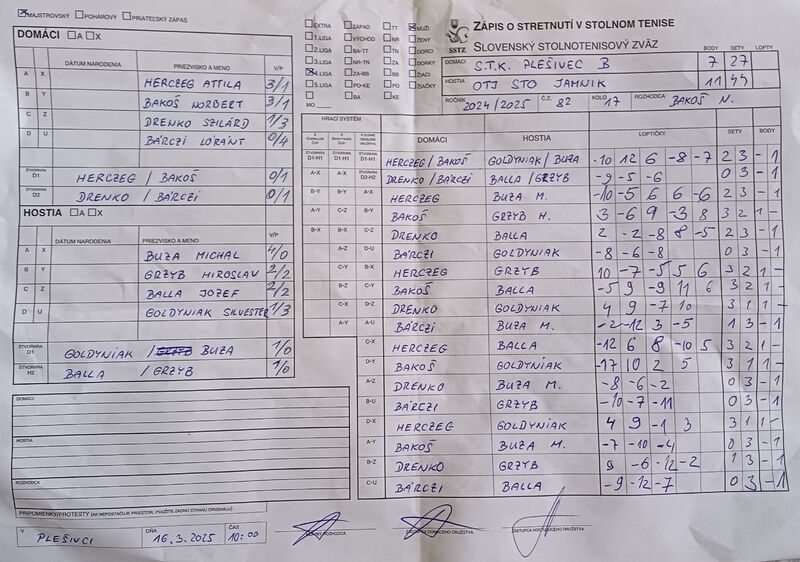 ☒ MAJSTROVSKÝ ☐ POHÁROVÝ ☐ PRIATEĽSKÝ ZÁPAS
DOMÁCI ☐ A ☐ X
DÁTUM NARODENIA PRIEZVISKO A MENO V/P
A X HERCZEG ATTILA 3/1
B Y BAKOŠ NORBERT 3/1
C Z DRENKO SZILÁRD 1/3
D U BÁRCZI LÓRÁNT 0/4
ŠTVORHRA D1 HERCZEG / BAKOŠ 0/1
ŠTVORHRA D2 DRENKO / BÁRCZI 0/1
HOSTIA ☐ A ☐ X
DÁTUM NARODENIA PRIEZVISKO A MENO V/P
A X BUZA MICHAL 4/0
B Y GRZYB MIROSLAV 2/2
C Z BALLA JOZEF 2/2
D U GOLDYNIAK SILVESTER 1/3
ŠTVORHRA D1 GOLDYNIAK / BUZA 1/0
ŠTVORHRA H2 BALLA / GRZYB 1/0
DOMÁCI
HOSTIA
ROZHODCA
PRIPOMIENKY/PROTESTY (AK NEPOSTAČUJE PRIESTOR, POUŽITE ZADNÚ STRANU ORIGINÁLU)
V PLEŠIVCI DŇA 16.3.2025 ČAS 10:00
HLAVNÝ ROZHODCA ZÁSTUPCA DOMÁCEHO DRUŽSTVA ZÁSTUPCA HOSŤUJÚCEHO DRUŽSTVA
☐ EXTRA ☐ ZÁPAD ☐ TT ☒ MUŽI
☐ 1.LIGA ☐ VÝCHOD ☐ NR ☐ ŽENY
☐ 2.LIGA ☐ BA-TT ☐ TN ☐ DORCI
☐ 3.LIGA ☐ NR-TN ☐ ZA ☐ DORKY
☒ 4.LIGA ☐ ZA-BB ☐ BB ☐ ŽIACI
☐ 5.LIGA ☐ PO-KE ☐ PO ☐ ŽIAČKY
☐ BA ☐ KE
MO
SSTZ
ZÁPIS O STRETNUTÍ V STOLNOM TENISE
SLOVENSKÝ STOLNOTENISOVÝ ZVÄZ
BODY SETY LOPTY
DOMÁCI S.T.K. PLEŠIVEC B 7 27
HOSTIA OTJ STO JAMNIK 11 44
ROČNÍK 2024/2025 Č.Z. 82 KOLO 17 ROZHODCA BAKOŠ N.
HRACÍ SYSTÉM DOMÁCI HOSTIA LOPTIČKY SETY BODY
ŠTVORHRA D1-H1 ŠTVORHRA D1-H1 ŠTVORHRA D1-H1 HERCZEG / BAKOŠ GOLDYNIAK / BUZA -10 12 6 -8 -7 2 3 - 1
A-X A-X ŠTVORHRA D2-H2 DRENKO / BÁRCZI BALLA / GRZYB -9 -5 -6 0 3 - 1
B-Y B-Y A-X HERCZEG BUZA M. -10 -5 6 6 -6 2 3 - 1
A-Y C-Z B-Y BAKOŠ GRZYB M. 3 -6 9 -3 8 3 2 1 -
B-X B-X C-Z DRENKO BALLA 2 -2 -8 8 -5 2 3 - 1
A-Z D-U BÁRCZI GOLDYNIAK -8 -6 -8 0 3 - 1
C-Y B-X HERCZEG GRZYB 10 -7 -5 5 6 3 2 1 -
B-Z C-Y BAKOŠ BALLA -5 9 -9 11 6 3 2 1 -
C-X D-Z DRENKO GOLDYNIAK 4 9 -7 10 3 1 1 -
A-Y A-U BÁRCZI BUZA M. -2 -12 3 -5 1 3 - 1
C-X HERCZEG BALLA -12 6 8 -10 5 3 2 1 -
D-Y BAKOŠ GOLDYNIAK -17 10 2 5 3 1 1 -
A-Z DRENKO BUZA M. -8 -6 -2 0 3 - 1
B-U BÁRCZI GRZYB -10 -7 -11 0 3 - 1
D-X HERCZEG GOLDYNIAK 4 9 -1 3 3 1 1 -
A-Y BAKOŠ BUZA M. -7 -10 -4 0 3 - 1
B-Z DRENKO GRZYB 9 -6 -12 -2 1 3 - 1
C-U BÁRCZI BALLA -9 -12 -7 0 3 - 1